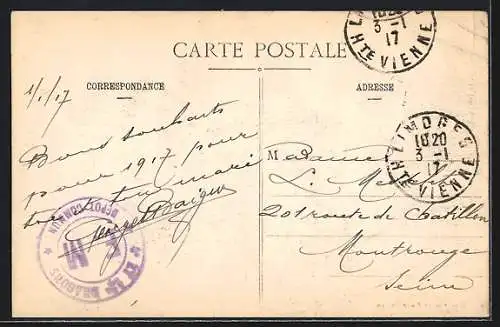 CARTE POSTALE
CORRESPONDANCE
ADRESSE
1/1/17
Bons souhaits
pour 1917 pour
toi et ton mari
DÉPÔT COMMUN
DRAGONS
LIMOGES
18 20
3 - 1
17
Hte VIENNE
LIMOGES
18 20
3 - 1
17
Hte VIENNE
Madame
L.
201 route de Chatillon
Montrouge
Seine